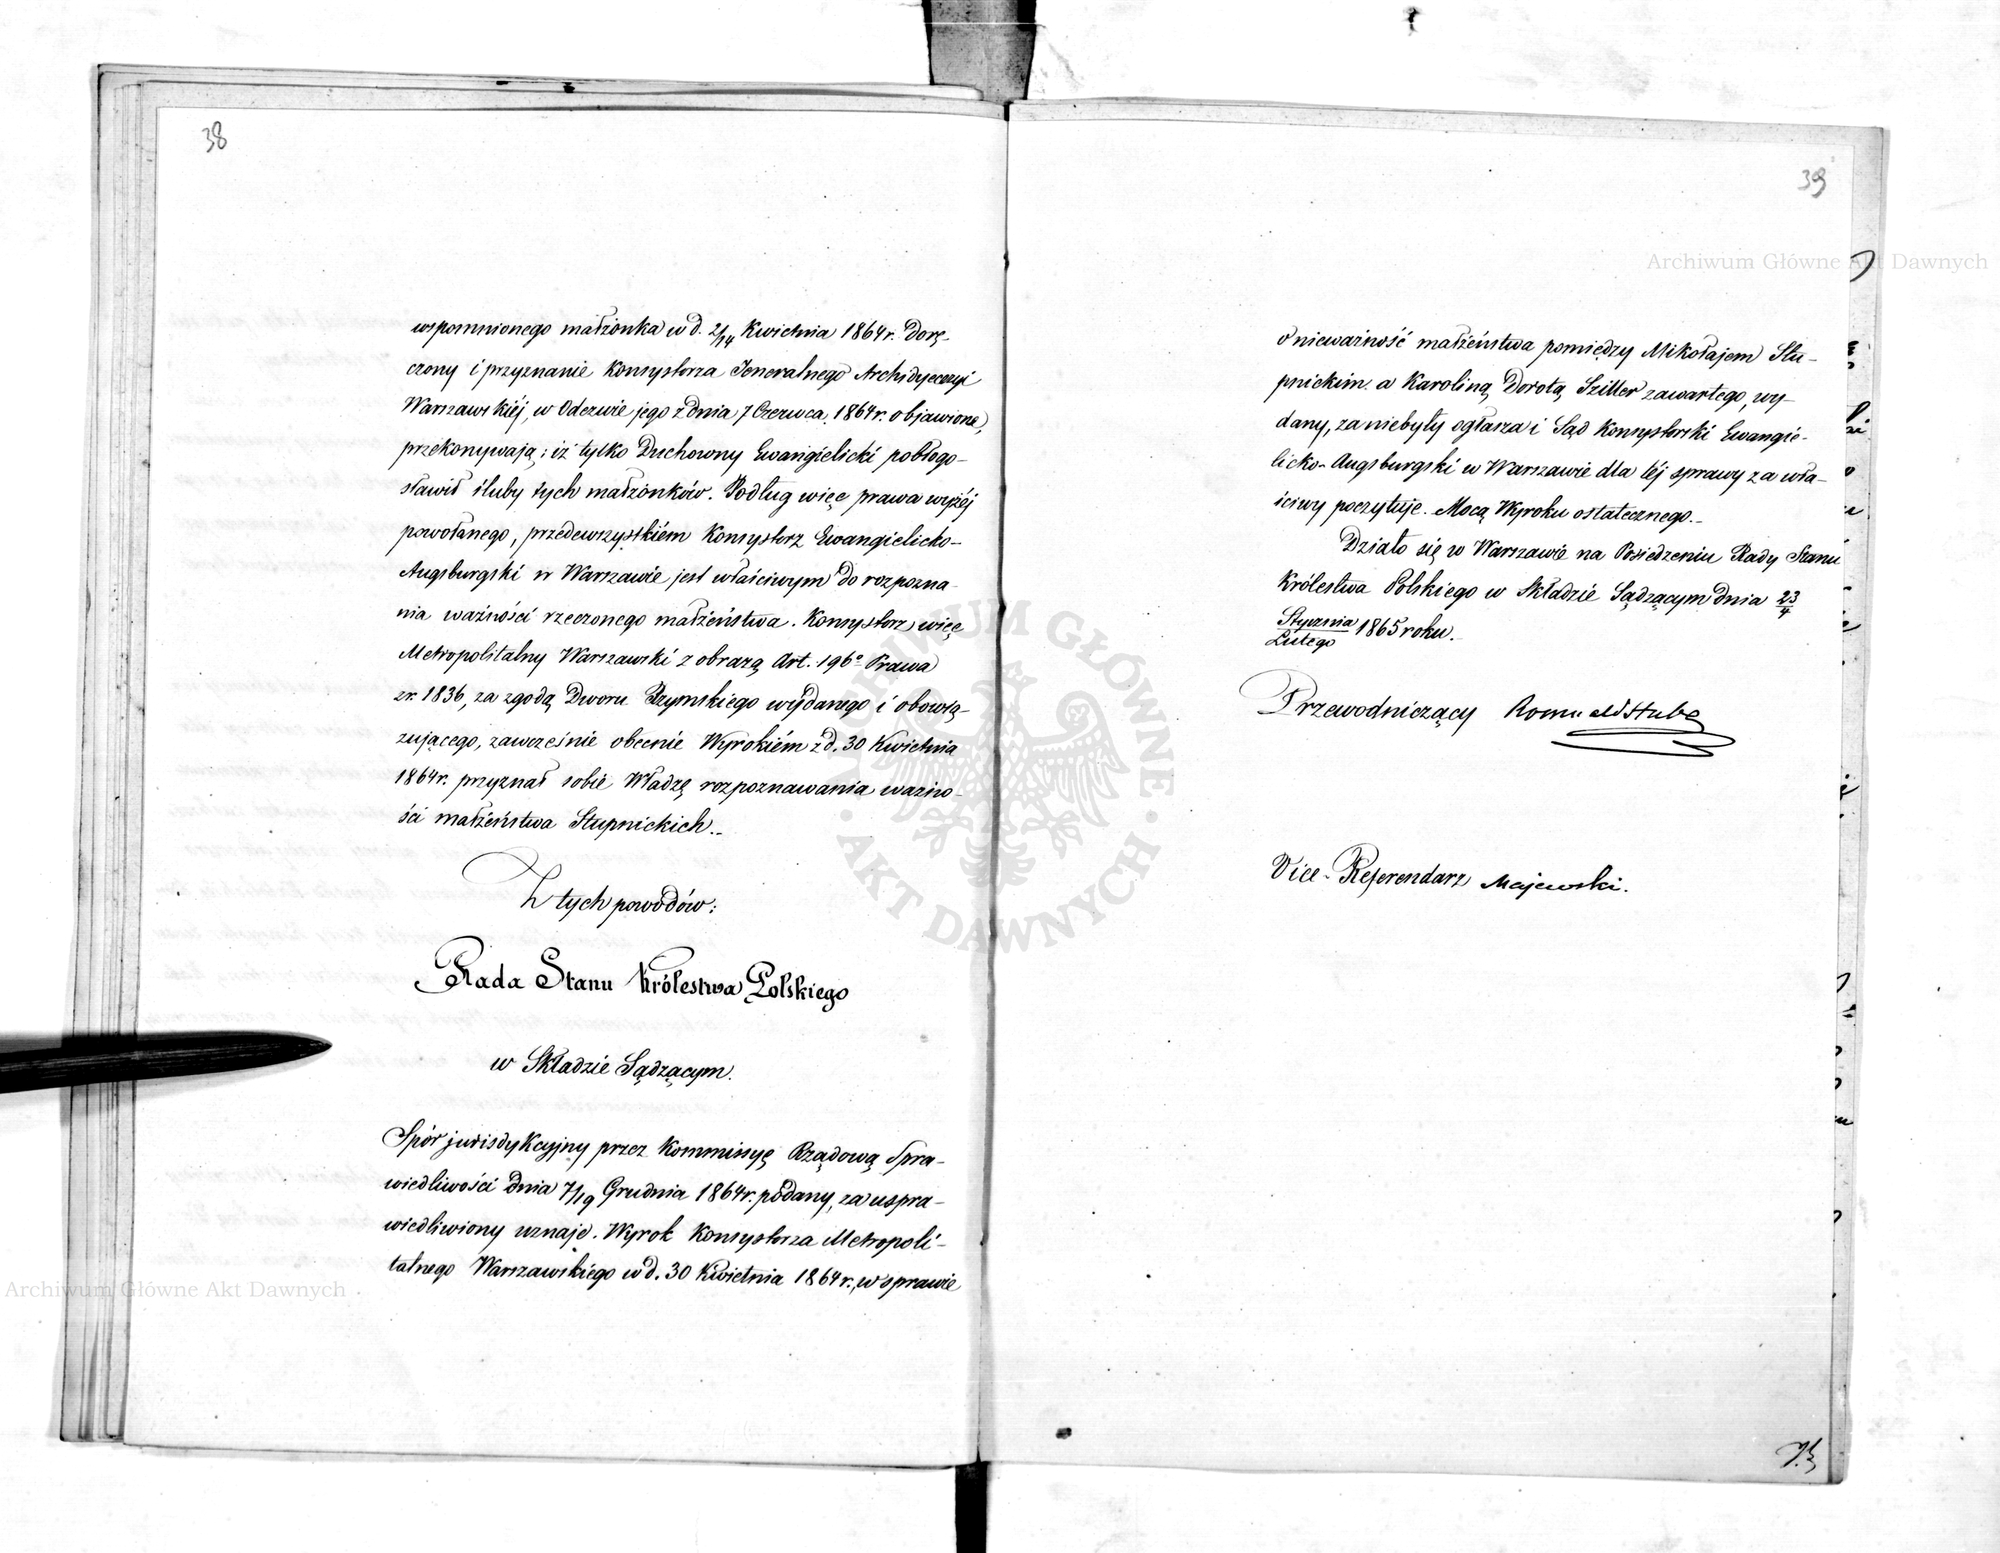 38
wspomnionego małżonka w d. 2/14 Kwietnia 1864 r. Dorę-
czony i przyznanie Konsystorza Jeneralnego Archidyecezyi
Warszawskiéj, w Odezwie jego z dnia 7 Czerwca 1864 r. objawione,
przekonywają; iż tylko Duchowny Ewangielicki pobłogo-
sławił śluby tych małżonków. Podług więc prawa wyżéj
powołanego, przedewszystkiém Konsystorz Ewangielicko-
Augsburgski w Warszawie jest właściwym do rozpozna-
nia ważności rzeczonego małżeństwa. Konsystorz więc
Metropolitalny Warszawski z obrazą Art. 196º Prawa
z r. 1836, za zgodą Dworu Rzymskiego wydanego i obowią-
zującego, zawcześnie obecnie Wyrokiém z d. 30 Kwietnia
1864 r. przyznał sobie Władzę rozpoznawania ważno-
ści małżeństwa Stupnickich.-
Z tych powodów:
Rada Stanu Królestwa Polskiego
w Składzie Sądzącym.
Spór jurisdykcyjny przez Kommissyę Rządową Spra-
wiedliwości dnia 7/19 Grudnia 1864 r. podany, za uspra-
wiedliwiony uznaje. Wyrok Konsystorza Metropoli-
talnego Warszawskiego w d. 30 Kwietnia 1864 r., w sprawie
39
o nieważność małżeństwa pomiędzy Mikołajem Stu-
pnickim a Karoliną Dorotą Sziller zawartego, wy-
dany, za niebyły ogłasza i Sąd Konsystorski Ewangie-
licko-Augsburgski w Warszawie dla téj sprawy za wła-
ściwy poczytuje. Mocą Wyroku ostatecznego.-
Działo się w Warszawie na Posiedzeniu Rady Stanu
Królestwa Polskiego w Składzie Sądzącym dnia 23/4
Stycznia/Lutego 1865 roku.
Przewodniczący Romuald Hube
Vice-Referendarz Majewski.
Archiwum Główne Akt Dawnych
Archiwum Główne Akt Dawnych
ARCHIWUM GŁÓWNE · AKT DAWNYCH ·